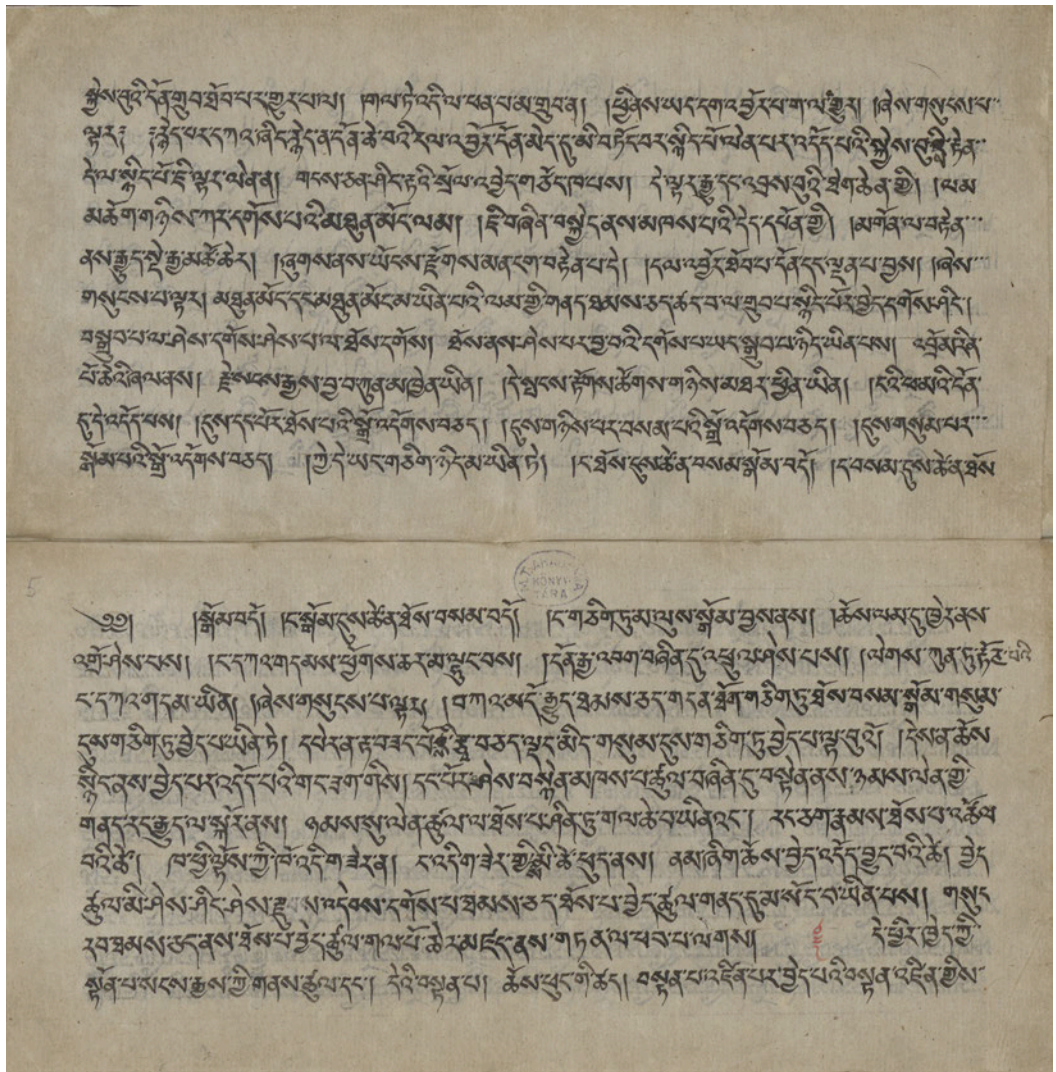 སྐྱེས་བུའི་དོན་གྲུབ་ཐོབ་པར་གྱུར་པ་ལ། །གལ་ཏེ་འདི་ལ་ཕན་པ་མ་གྲུབ་ན། །ཕྱི་ནས་ཡང་དག་འབྱོར་པ་ག་ལ་གྱུར། །ཞེས་གསུངས་པ་
ལྟར༑ ༑རྙེད་པར་དཀའ་ཞིང་རྙེད་ན་དོན་ཆེ་བའི་དལ་འབྱོར་དོན་མེད་དུ་མི་བཏང་བར་སྙིང་པོ་ལེན་པར་འདོད་པའི་སྐྱེས་བུ་ རྟེན་
དེ་ལ་སྙིང་པོ་ཇི་ལྟར་ལེན་ན། གངས་ཅན་ཤིང་རྟའི་སྲོལ་འབྱེད་གཙོང་ཁ་པས། དེ་ལྟར་རྒྱུ་དང་འབྲས་བུའི་ཐེག་ཆེན་གྱི། །ལམ་
མཆོག་གཉིས་ཀར་དགོས་པའི་མཐུན་མོང་ལམ། །ཇི་བཞིན་བསྐྱེད་ནས་མཁས་པའི་དེད་དཔོན་གྱི། །མགོན་ལ་བརྟེན་
ནས་རྒྱུད་སྡེ་རྒྱ་མཚོ་ཆེར། །ཞུགས་ནས་ཡོངས་རྫོགས་མན་ངག་བརྟེན་པ་དེ། །དལ་འབྱོར་ཐོབ་པ་དོན་དང་ལྡན་པ་བྱས། །ཞེས་
གསུངས་པ་ལྟར། མཐུན་མོང་དང་མཐུན་མོང་མ་ཡིན་པའི་ལམ་གྱི་གནད་ཐམས་ཅད་ཚང་བ་ལ་གྲུབ་པ་སྙིང་པོར་བྱེད་དགོས་ཤིང་།
བསྒྲུབ་པ་ལ་ཤེས་དགོས་ཤེས་པ་ལ་ཐོས་དགོས། ཐོས་ནས་ཤེས་པར་བྱ་བའི་དགོས་པ་ཡང་སྒྲུབ་པ་ཉིད་ཡིན་པས། འབྲོམ་རིན་
པོ་ཆེའི་ཞལ་ནས། རྗེས་ངས་རྒྱས་བྱ་བ་ཀུན་མཁྱེན་ཡིན། །དེ་སྤངས་རྟོགས་ཚོགས་གཉིས་མཐར་ཕྱིན་ཡིན། །ངའི་ཕ་མའི་དོན་
དུ་དེ་འདོད་པས། །དུས་དང་པོར་ཐོས་པའི་སྒྲོ་འདོགས་བཅད། །དུས་གཉིས་པར་བསམ་པའི་སྒྲོ་འདོགས་བཅད། །དུས་གསུམ་པར་
སྒོམ་པའི་སྒྲོ་འདོགས་བཅད། །ཀྱེ་དེ་ཡང་གཅིག་ཉིད་མ་ཡིན་ཏེ། །ང་ཐོས་དུས་ཚེ་ན་བསམ་སྒོམ་བདོ། །ང་བསམ་དུས་ཚེ་ན་ཐོས་
༄༅། །སྒོམ་བདོ། །ང་སྒོམ་དུས་ཚེ་ན་ཐོས་བསམ་བདོ། །ང་གཅིག་ཏུ་མ་ལུས་སྒོམ་བྱས་ནས། །ཆོས་ལམ་དུ་ཁྱེར་ནས་
འགྲོ་ཤེས་པས། །ང་དཀའ་གདམས་ཕྱོགས་ཆར་མ་ལྷུང་བས། །དོན་རྒྱ་འབག་བཞིན་དུ་འཕྲུལ་ཤེས་པས། །ལེགས་ཀུན་ཏུ་རྟོར་བའི་
ང་དཀའ་གདམ་ཡིན། །ཞེས་གསུངས་པ་ལྟར། །བཀའ་མདོ་རྒྱུད་ཐམས་ཅད་གདན་ཐོག་གཅིག་ཏུ་ཐོས་བསམ་སྒོམ་གསུམ་
དུམ་གཅིག་ཏུ་བྱེད་པ་ཡིན་ཏེ། དཔེར་ན་རྟ་བཟང་པོ རྩྭ་བཅད་ལྡད་མིད་གསུམ་དུས་གཅིག་ཏུ་བྱེད་པ་ལྟ་བུའོ། །དེས་ན་ཆོས་
སྙིང་ནས་བྱེད་པར་འདོད་པའི་གང་ཟག་གིས། དང་པོར་ཤེས་བསྙེན་མཁས་པ་ཚུལ་བཞིན་དུ་བསྟེན་ནས་ཉམས་ལེན་གྱི་
གནད་རང་རྒྱུད་ལ་སྐོར་ནས། ཉམས་སུ་ལེན་ཚུལ་ལ་ཐོས་པ་ཤིན་ཏུ་གལ་ཆེ་བ་ཡིན་འང་། རང་ཅག་རྣམས་ཐོས་པ་འཚོལ་
བའི་ཚེ། ཁ་ཕྱི་ལྟོས་ཀྱི་ཁོ་འདི་ག་ཟེར་ན། ང་འདི་ག་ཟེར་གྱི་ ཚེ་ཕུད་ནས། ནམ་ཞིག་ཆོས་བྱེད་འདོད་བྱུང་བའི་ཚེ། བྱེད་
ཚུལ་མི་ཤེས་ཤིང་ཤེས་རྫུབས་འདེབས་དགོས་པ་ཐམས་ཅད་ཐོས་པ་བྱེད་ཚུལ་གནད་དུ་མ་སོང་བ་ཡིན་པས། གསུང་
རབ་ཐམས་ཅད་ནས་ཐོས་པ་བྱེད་ཚུལ་གལ་པོ་ཆེར་མཛད་ནས་གཏན་ལ་ཕབ་པ་ལགས། དེ་ཕྱིར་ཁྱེད་ཀྱི་
སྟོན་པ་སངས་རྒྱས་ཀྱི་གནས་ཚུལ་དང་། དེའི་བསྟན་པ། ཆོས་ཕུང་གི་ཚད། བསྟན་པ་འཛིན་པར་བྱེད་པའི་བསྟན་འཛིན་གྱིས་